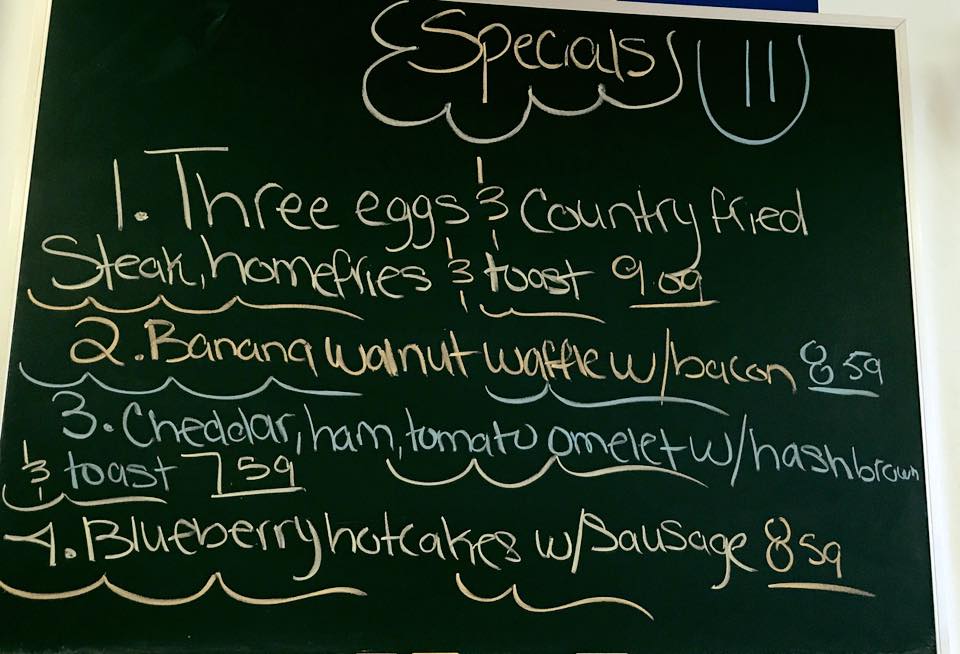 Specials
1. Three eggs & Country fried
Steak, homefries & toast 9.09
2. Banana walnut waffle w/bacon 8 59
3. Cheddar, ham, tomato omelet w/hashbrown
& toast 7.59
4. Blueberry hotcakes w/Sausage 8 59